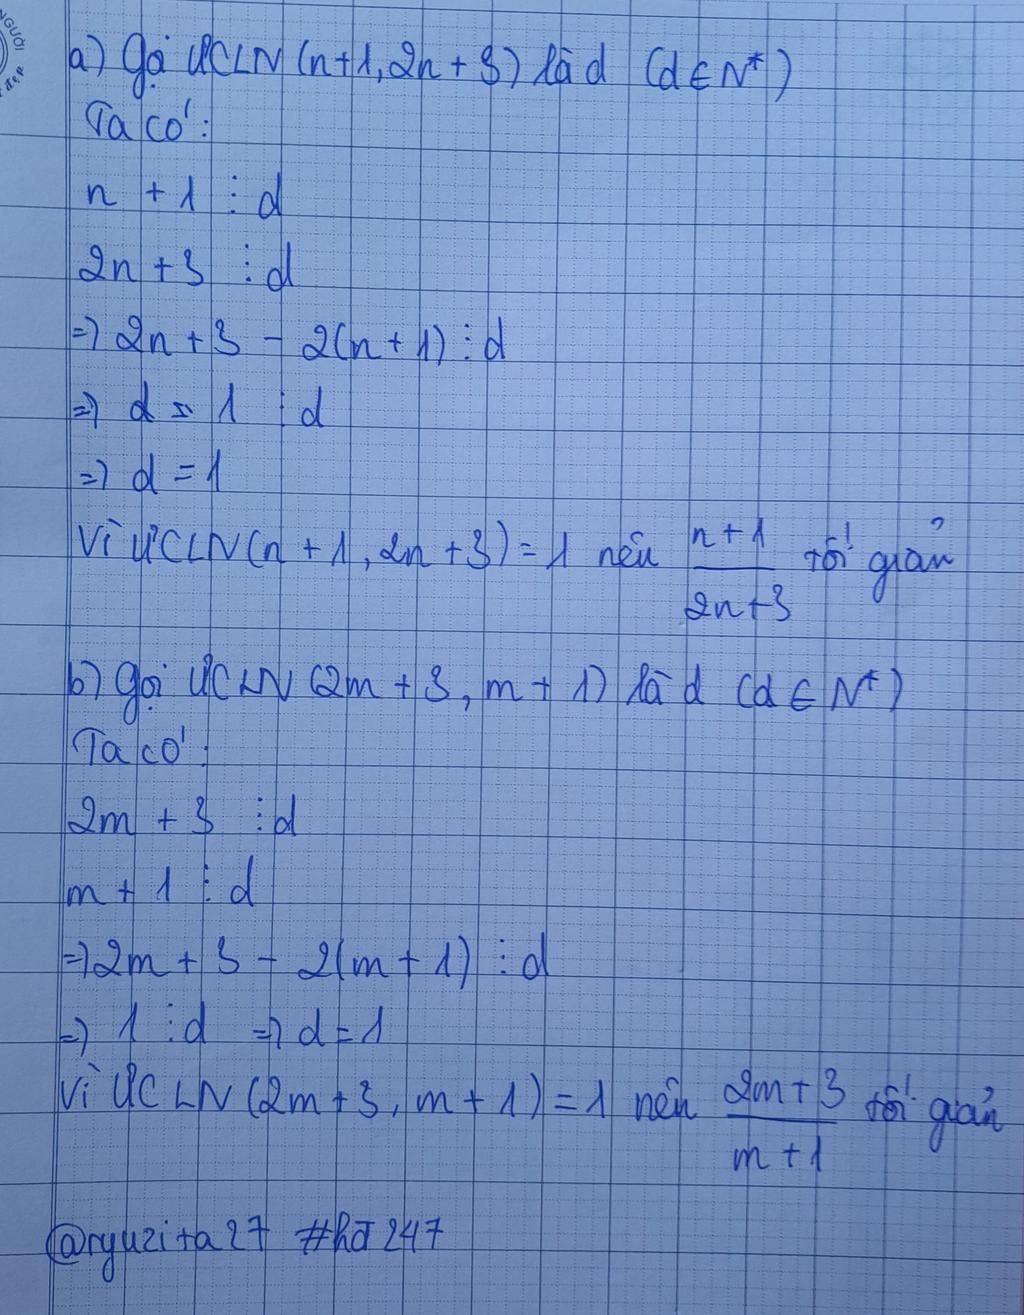 NGƯỜI
đẹp
a) Gọi ƯCLN (n+1, 2n+3) là d (d ∈ N*)
Ta có:
n + 1 ⋮ d
2n + 3 ⋮ d
=> 2n + 3 - 2(n + 1) ⋮ d
=> 1 ⋮ d
=> d = 1
Vì ƯCLN(n + 1, 2n + 3) = 1 nên n+1/2n+3 tối giản
b) Gọi ƯCLN (2m + 3, m + 1) là d (d ∈ N*)
Ta có:
2m + 3 ⋮ d
m + 1 ⋮ d
=> 2m + 3 - 2(m + 1) ⋮ d
=> 1 ⋮ d => d = 1
Vì ƯCLN (2m + 3, m + 1) = 1 nên 2m+3/m+1 tối giản
@ryuzita27 #hđ247